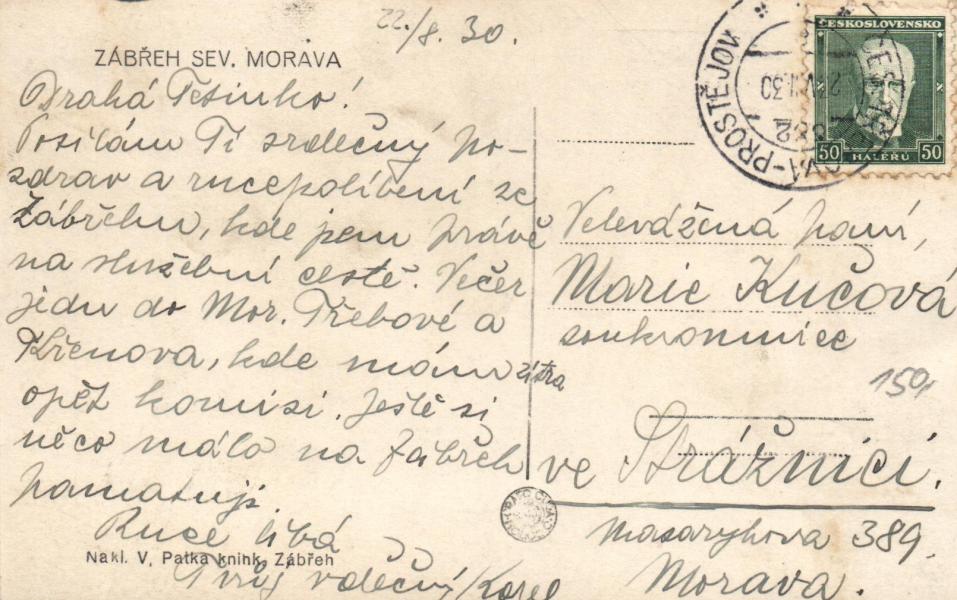 22./8. 30.
ZÁBŘEH SEV. MORAVA
Drahá Tetinko!
Posílám Ti srdečný po-
zdrav a rucepolíbení ze
Zábřehu, kde jsem právě
na služební cestě. Večer
jedu do Mor. Třebové a
Křenova, kde mám zítra
opět komisi. Ještě si
něco málo na Zábřeh
pamatuji.
Ruce líbá
Tvůj vděčný Karel
Nakl. V. Patka knihk. Zábřeh
ČESKOSLOVENSKO
50 HALÉŘŮ 50
VÁ-PROSTĚJOV
Velevážená paní,
Marie Kučová
soukromnice
150,
ve Strážnici.
Masarykova 389.
Morava.